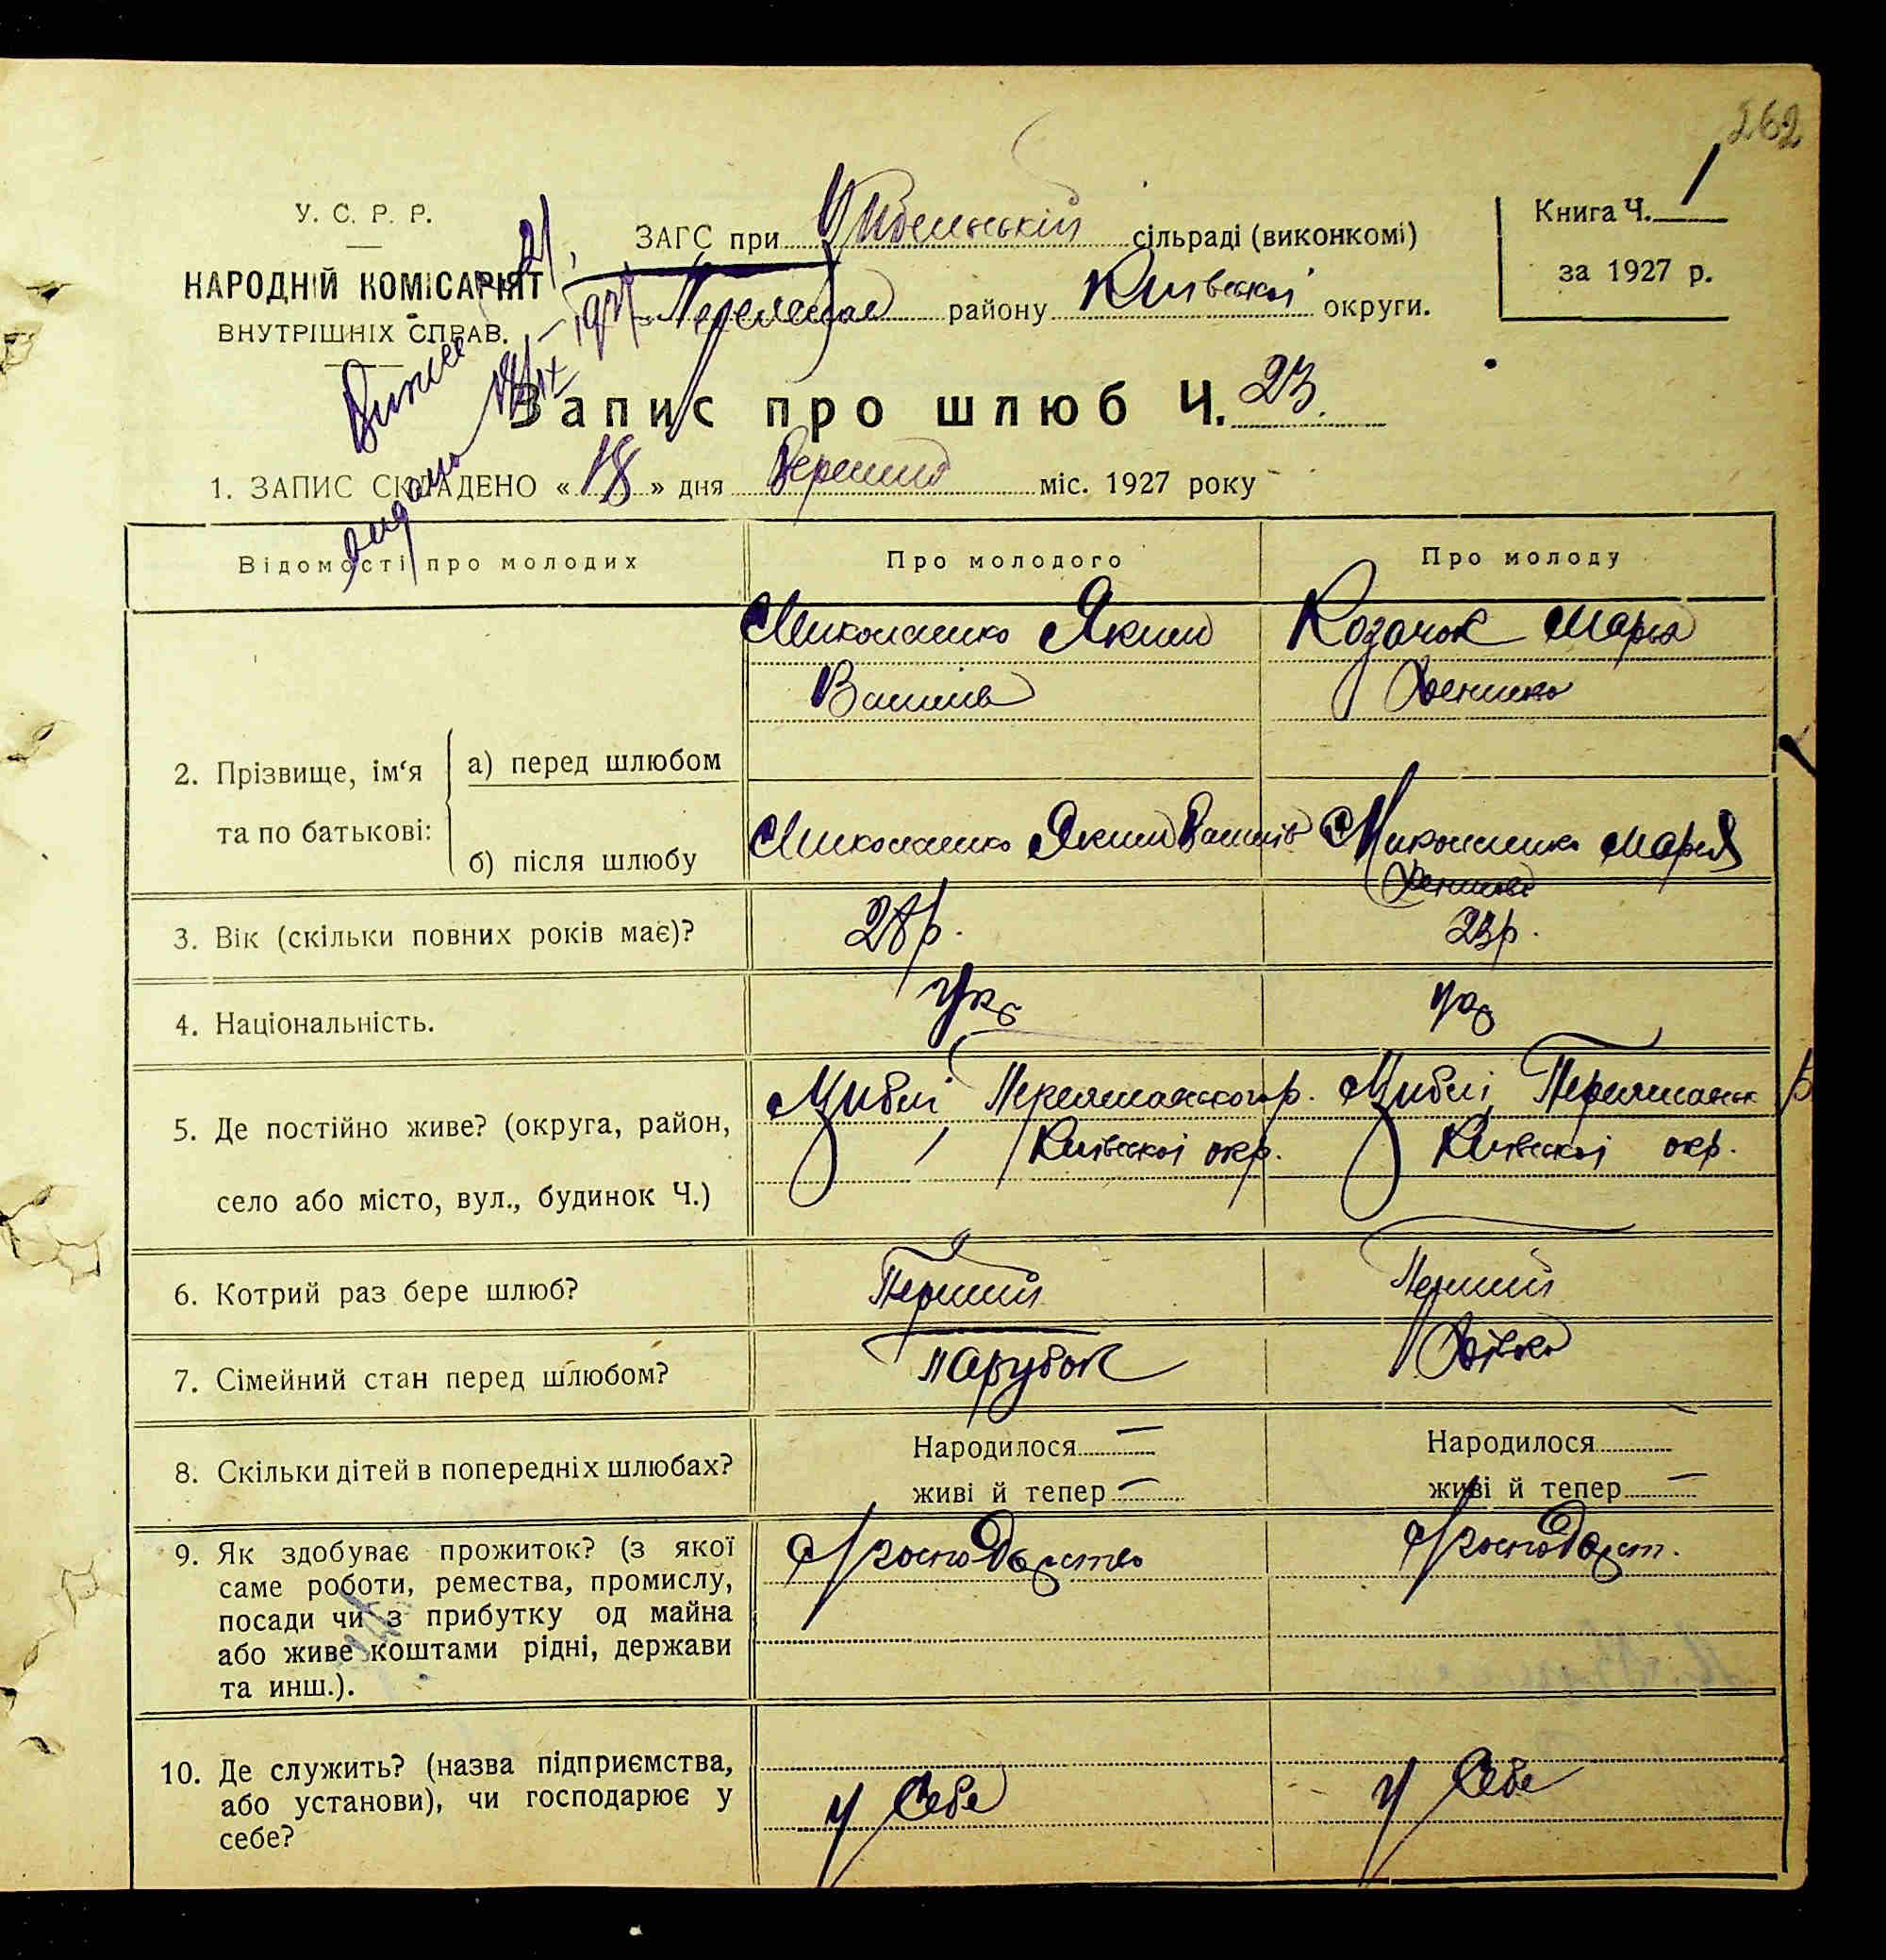 262
У. С. Р. Р.
НАРОДНІЙ КОМІСАРІЯТ
ВНУТРІШНІХ СПРАВ.
ЗАГС при Цибленській сільраді (виконкомі)
району Київської округи.
Книга Ч. 1
за 1927 р.
Запис про шлюб Ч. 23.
1. ЗАПИС СКЛАДЕНО « 18 » дня Вересня міс. 1927 року
Відомості про молодих
Про молодого
Про молоду
2. Прізвище, ім'я та по батькові:
а) перед шлюбом
Миколаенко Яким
Козачок Марья
б) після шлюбу
Миколаенко Яким
Миколаенко Мария
3. Вік (скільки повних років має)?
28 р.
23 р.
4. Національність.
Укр
Укр
5. Де постійно живе? (округа, район,
село або місто, вул., будинок Ч.)
Циблі, Переяславского р.
Київскоі окр.
Циблі, Переяславськ р
Київскоі окр.
6. Котрий раз бере шлюб?
Перший
Перший
7. Сімейний стан перед шлюбом?
парубок
Дівка
8. Скільки дітей в попередніх шлюбах?
Народилося —
живі й тепер —
Народилося —
живі й тепер —
9. Як здобуває прожиток? (з якої
саме роботи, ремества, промислу,
посади чи з прибутку од майна
або живе коштами рідні, держави
та инш.).
господарство
господарст.
10. Де служить? (назва підприємства,
або установи), чи господарює у
себе?
у Себе
у Себе